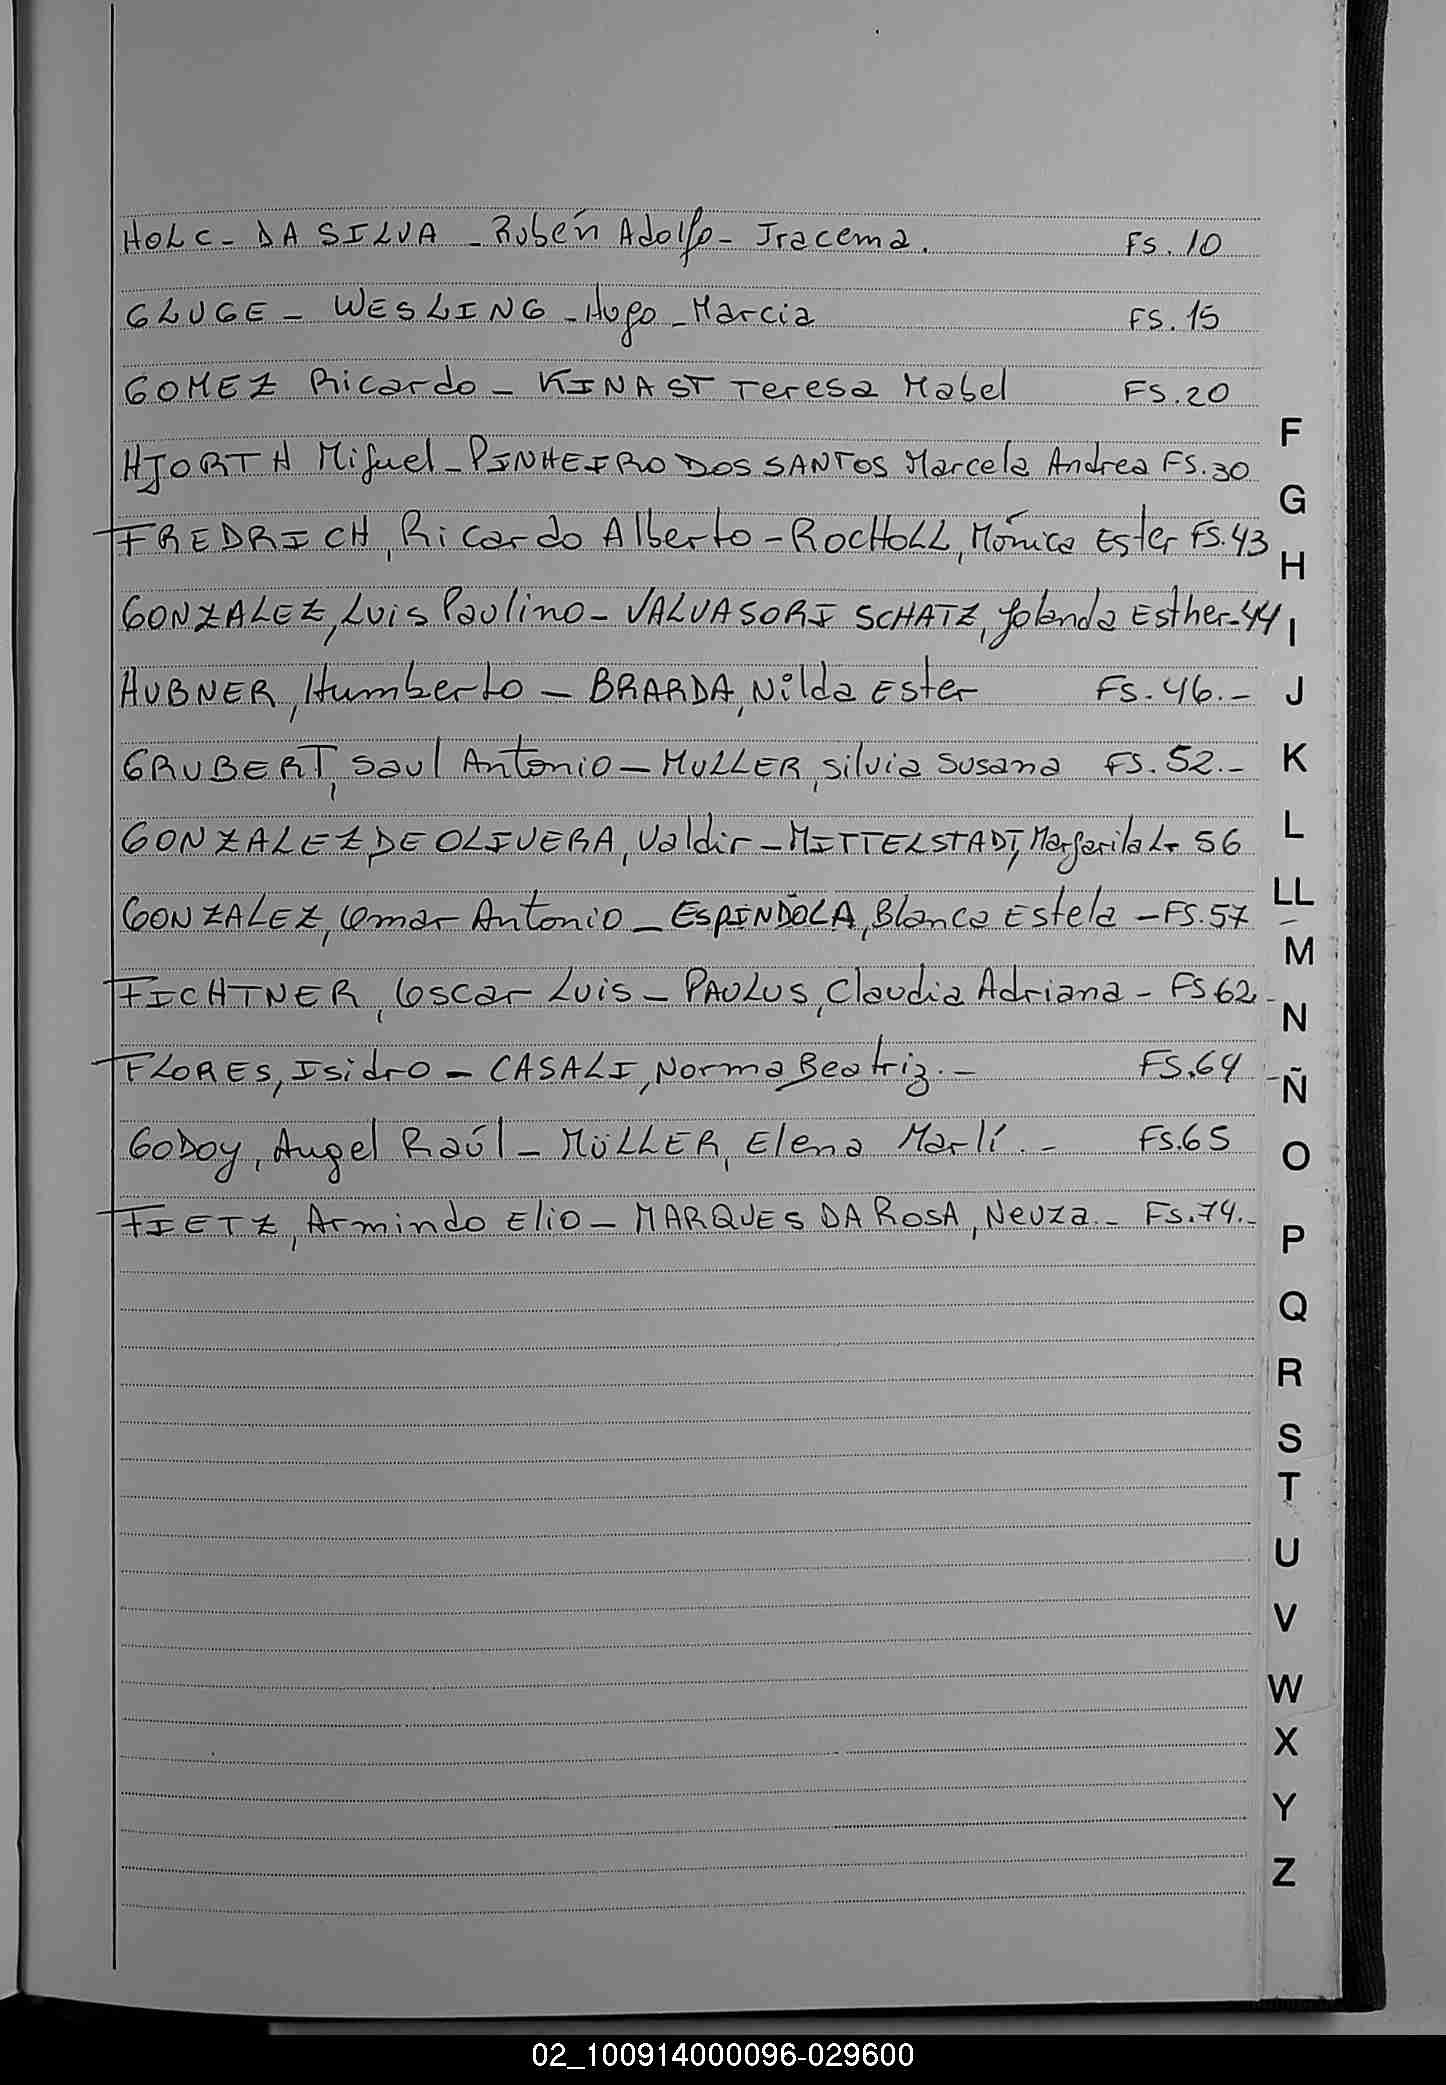 HOLC - DA SILVA - Rubén Adolfo - Iracema. FS. 10
GLUGE - WESLING - Hugo - Marcia FS. 15
GOMEZ Ricardo - KINAST Teresa Mabel FS. 20
HJORTH Miguel - PINHEIRO DOS SANTOS Marcela Andrea FS. 30
FREDRICH, Ricardo Alberto - ROCHOLL, Mónica Ester FS. 43
GONZALEZ, Luis Paulino - VALVASORI SCHATZ, Yolanda Esther - 44
HUBNER, Humberto - BRARDA, Nilda Ester FS. 46.-
GRUBERT, Saul Antonio - MULLER, Silvia Susana FS. 52.-
GONZALEZ DE OLIVERA, Valdir - MITTELSTADT, Margarita L. 56
GONZALEZ, Omar Antonio - ESPINDOLA, Blanca Estela - FS. 57
FICHTNER, Oscar Luis - PAULUS, Claudia Adriana - FS 62.-
FLORES, Isidro - CASALI, Norma Beatriz. - FS. 64 -
GODOY, Angel Raúl - MÜLLER, Elena Marlí. - FS. 65
FIETZ, Armindo Elio - MARQUES DA ROSA, Neuza. - FS. 74.-
F
G
H
I
J
K
L
LL
M
N
Ñ
O
P
Q
R
S
T
U
V
W
X
Y
Z
02_100914000096-029600